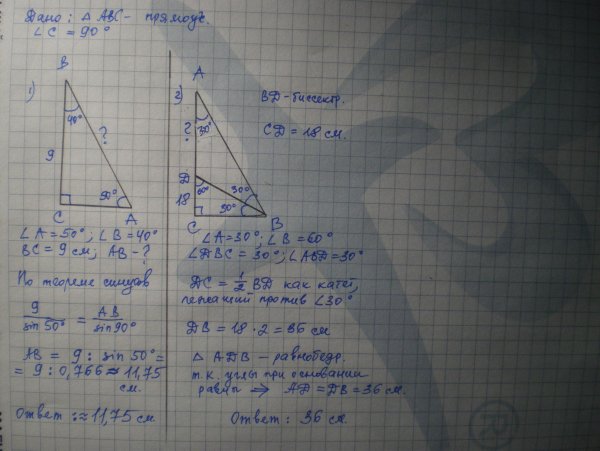 Дано: △ ABC - прямоуг.
∠C = 90°
1)
B
40°
9
?
50°
C
A
∠A=50°; ∠B=40°
BC=9 см; AB-?
По теореме синусов
9/sin 50° = AB/sin 90°
AB = 9 : sin 50° =
= 9 : 0,766 ≈ 11,75
см.
Ответ: ≈11,75 см
2)
A
BD-биссектр.
CD = 18 см.
?
30°
D
60°
30°
18
30°
C
B
∠A=30°; ∠B=60°
∠DBC = 30°; ∠ABD=30°
DC = 1/2 BD как катет,
лежащий против ∠30°
DB = 18 · 2 = 36 см
△ ADB - равнобедр.
т.к. углы при основании
равны ⇒ AD = DB = 36 см.
Ответ: 36 см.